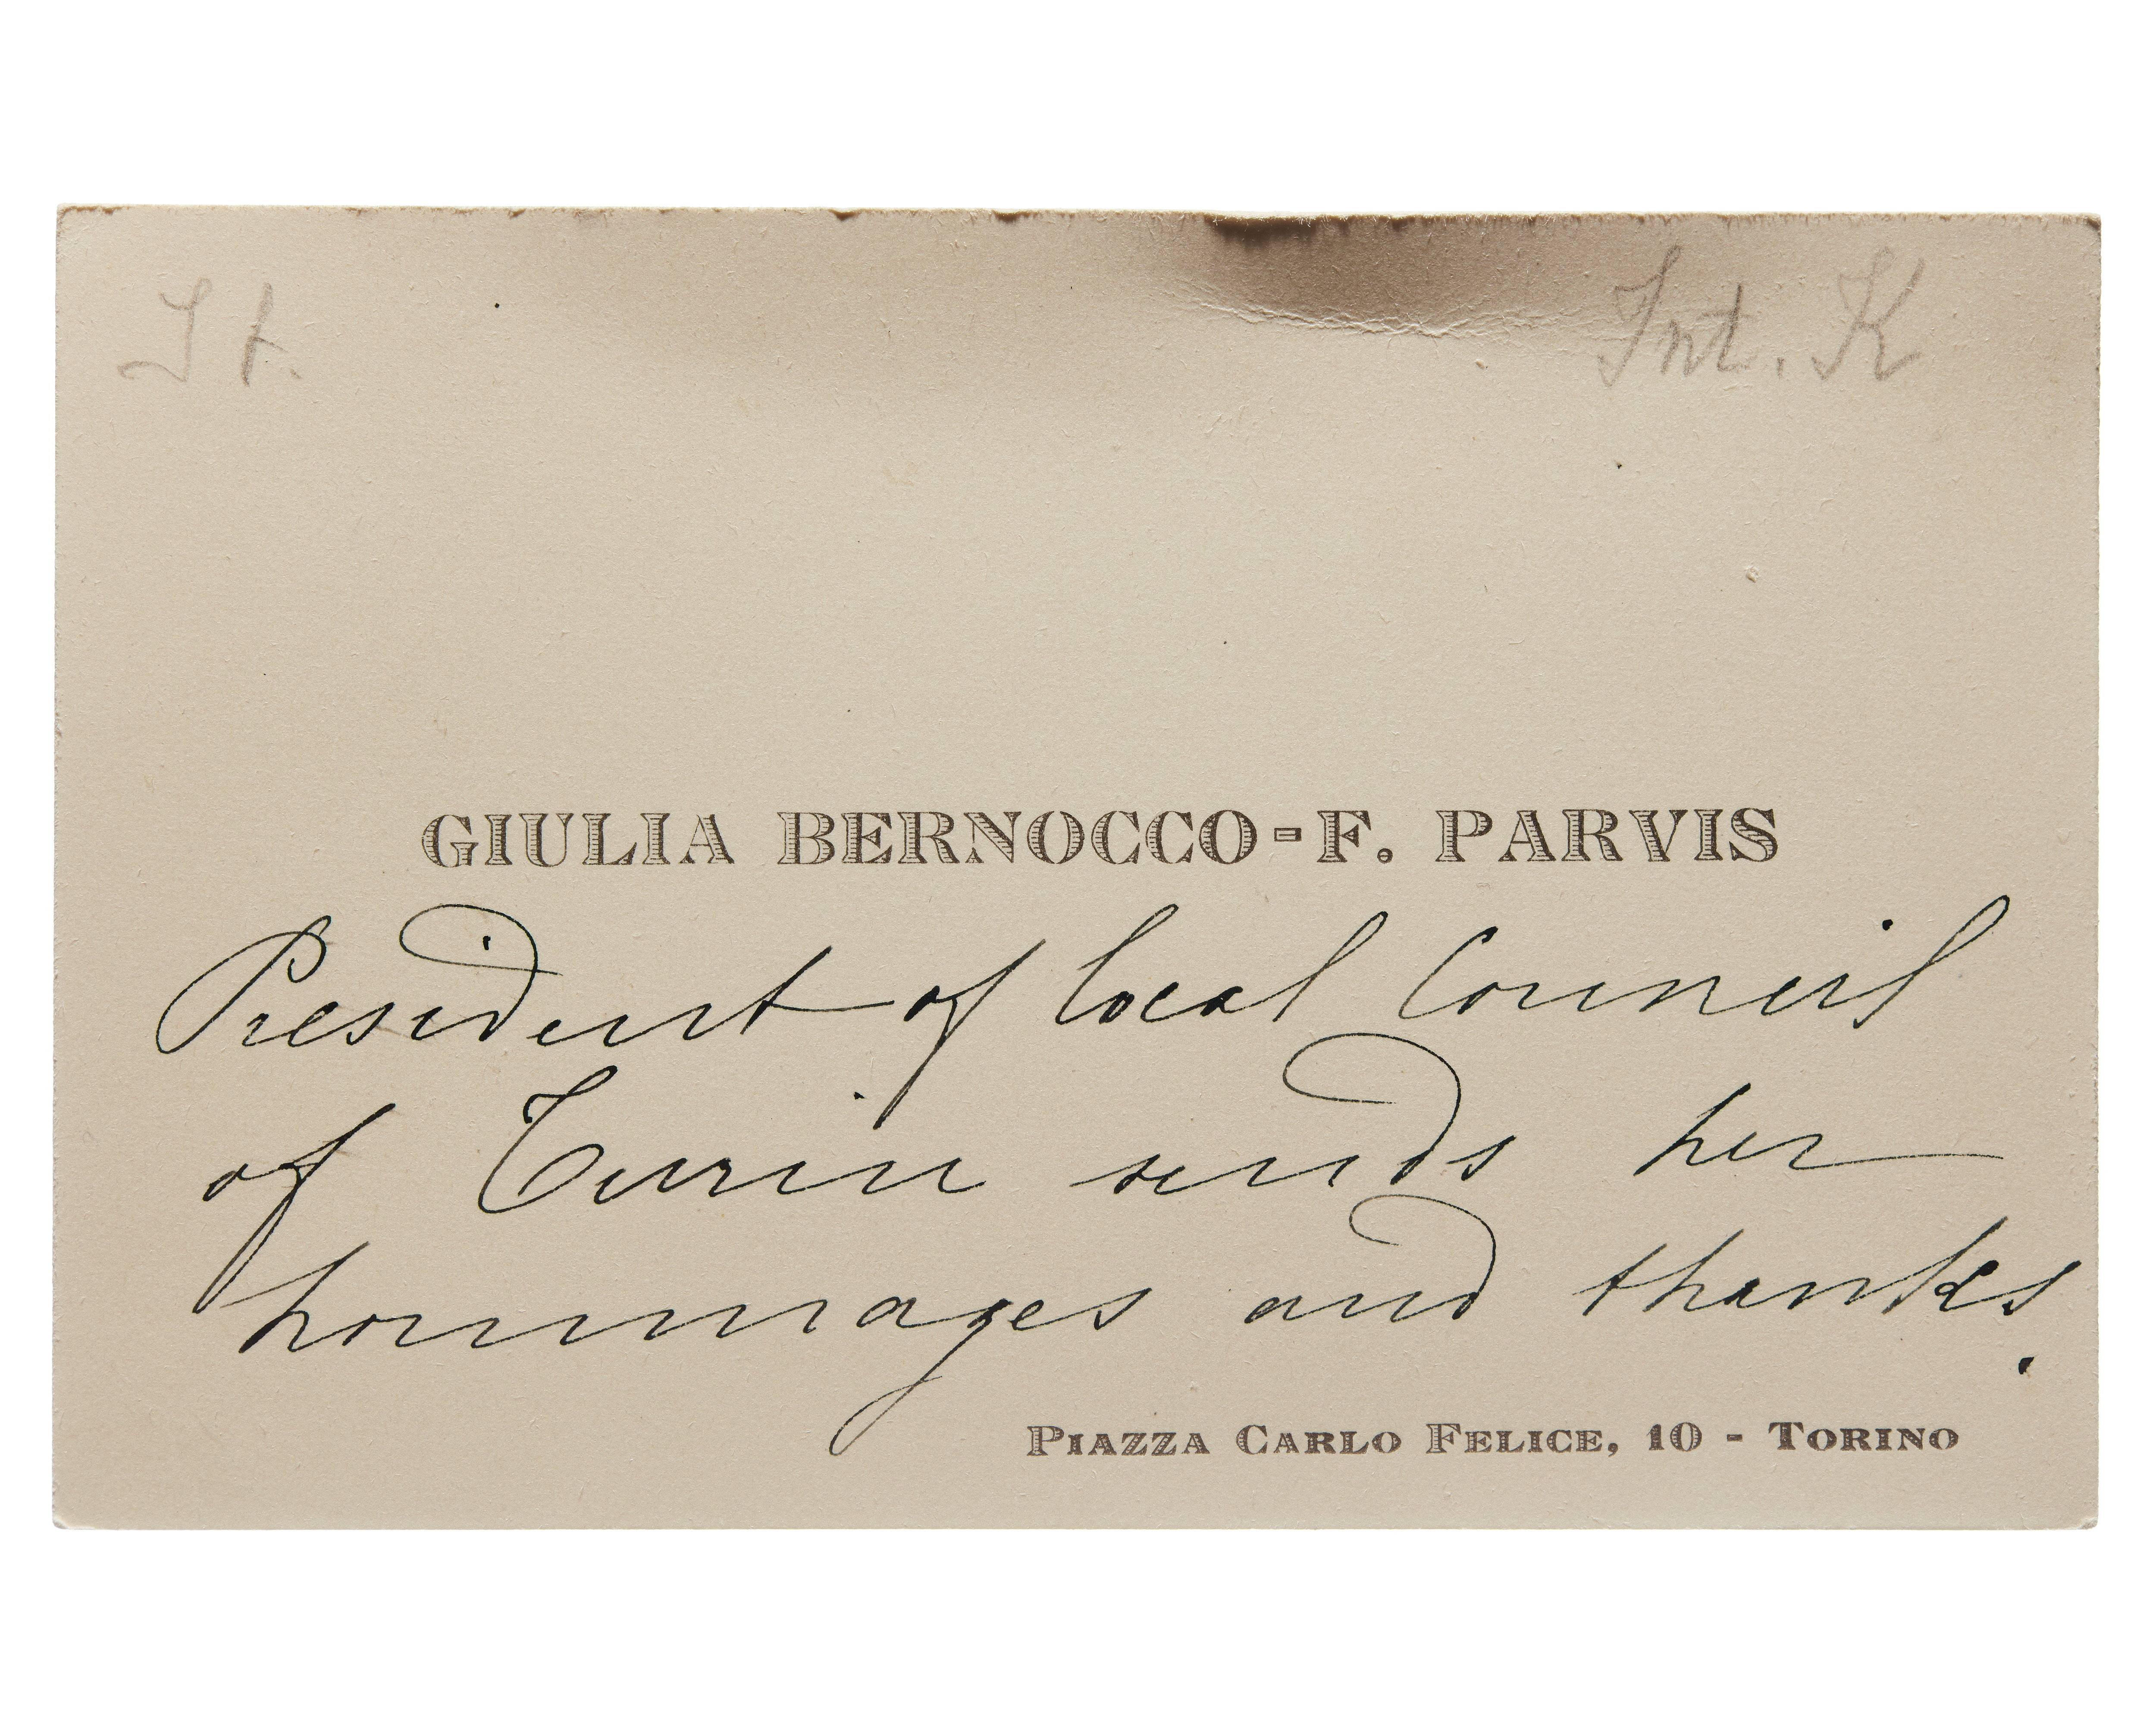 It. Int. K
GIULIA BERNOCCO-F. PARVIS
President of local Council
of Turin sends her
hommages and thanks.
PIAZZA CARLO FELICE, 10 - TORINO